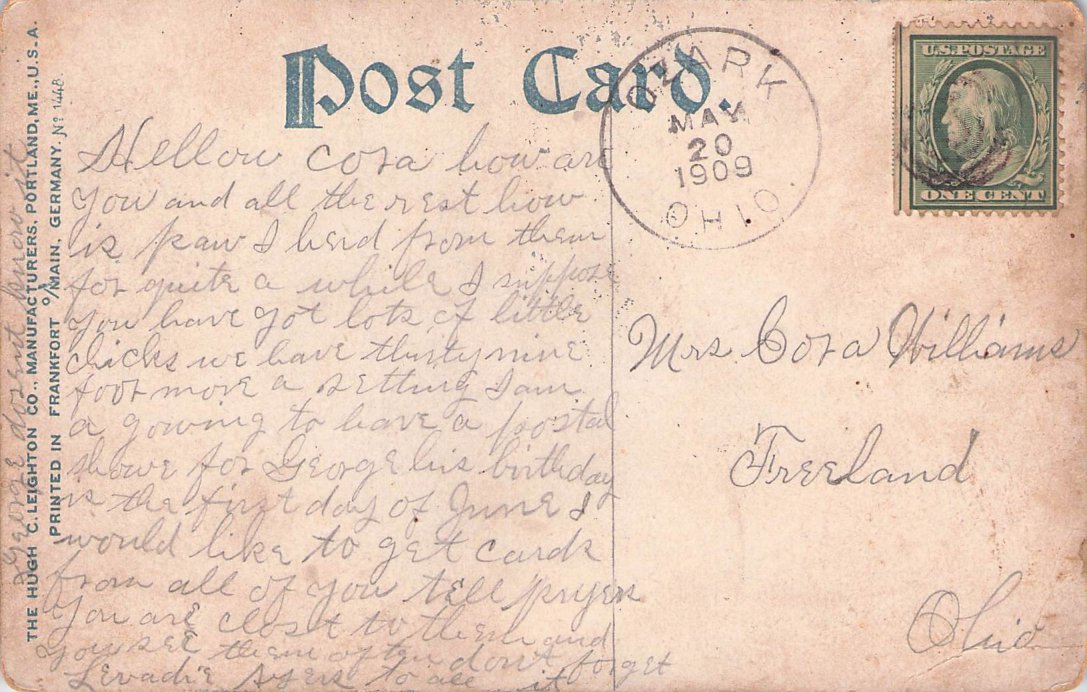 Post Card.
OZARK
MAY
20
1909
OHIO.
U.S. POSTAGE
ONE CENT
THE HUGH C. LEIGHTON CO., MANUFACTURERS, PORTLAND, ME., U.S.A.
PRINTED IN FRANKFORT O/MAIN, GERMANY. No 1448
Hellow cora how are
you and all the rest how
is paw I herd from them
for quite a while I suppose
you have got lots of little
chicks we have thirty nine
foor more a setting I am
a gowing to have a postal
showe for George his birthday
is the first day of June I
would like to get cards
from all of you tell pryers
you are clost to them and
you see them often dont forget
Levadie Ayers to all it
George dosent know it
Mrs Cora Williams
Freeland
Ohio